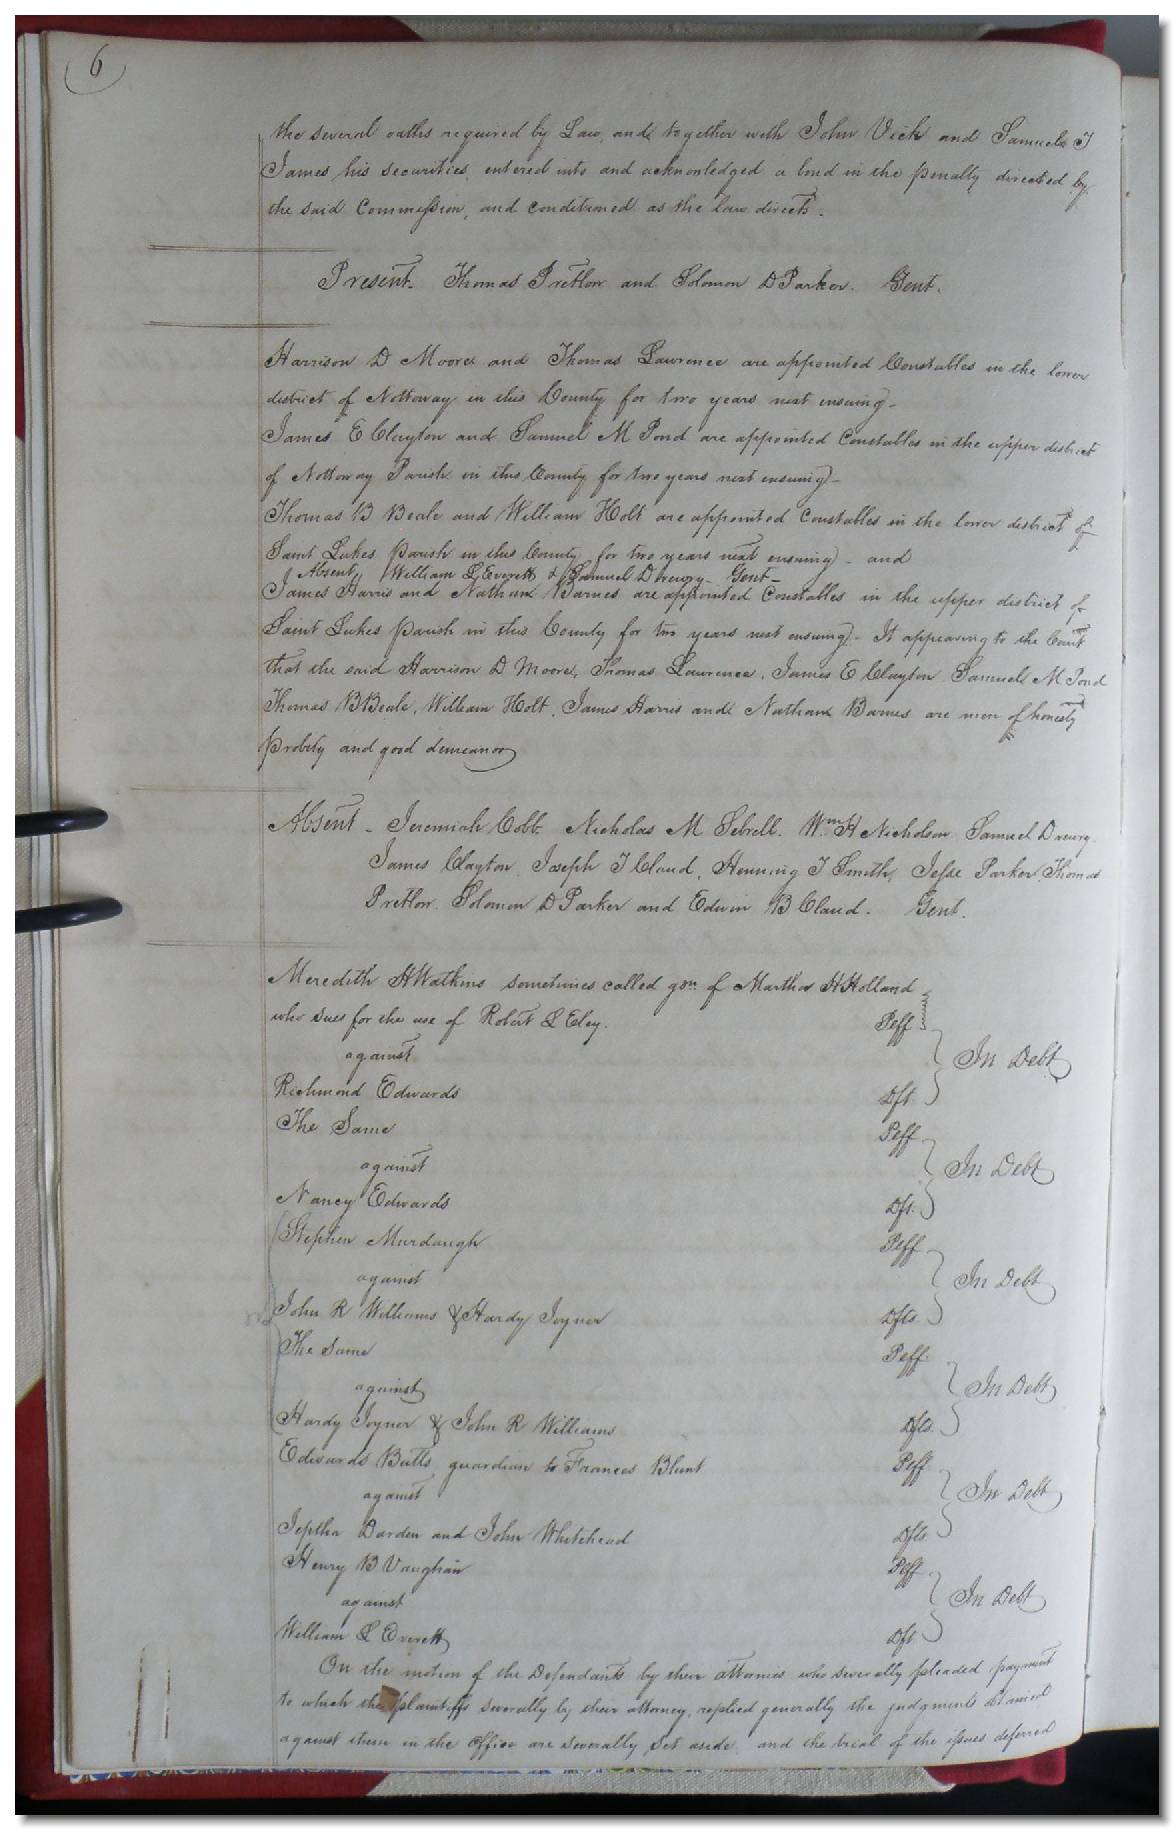 6
the several oaths required by Law, and together with John Vick and Samuel T
James his securities, entered into and acknowledged a bond in the penalty directed by
the said Commission, and conditioned as the law directs.
Present. Thomas Pretlow and Solomon D Parker. Gent.
Harrison D Moore and Thomas Lawrence are appointed Constables in the lower
district of Nottoway in this County for two years next ensuing.
James E Clayton and Samuel M Pond are appointed Constables in the upper district
of Nottoway Parish in this County for two years next ensuing.
Thomas B Beale and William Holt are appointed Constables in the lower district of
Saint Lukes Parish in this County for two years next ensuing. and
Absent William L Everett & Samuel Drewry. Gent.
James Harris and Nathan Barnes are appointed Constables in the upper district of
Saint Lukes Parish in this County for two years next ensuing. It appearing to the Court
that the said Harrison D Moore, Thomas Lawrence, James E Clayton Samuel M Pond
Thomas B Beale, William Holt, James Harris and Nathan Barnes are men of honesty
probity and good demeanor
Absent. Jeremiah Cobb. Nicholas M Sebrell. Wm H Nicholson Samuel Drewry.
James Clayton, Joseph T Claud, Henning T Smith, Jesse Parker, Thomas
Pretlow. Solomon D Parker and Edwin B Claud. Gent.
Meredith H Watkins sometimes called gdn of Martha H Holland
who sues for the use of Robert L Eley. Peff
against In Debt
Richmond Edwards Dft.
The Same Peff
against In Debt
Nancy Edwards Dft.
Stephen Murdaugh Peff
against In Debt
John R Williams & Hardy Joyner Dfts.
The Same Peff.
against In Debt
Hardy Joyner & John R Williams Dfts.
Edwards Butts guardian to Frances Blunt Peff
against In Debt
Jeptha Darden and John Whitehead Dfts.
Henry B Vaughan Peff
against In Debt
William L Everett Dft
On the motion of the Defendants by their attornies who severally pleaded payment
to which the plaintiffs severally by their attorney, replied generally the judgments obtained
against them in the office are severally set aside. and the trial of the issues deferred